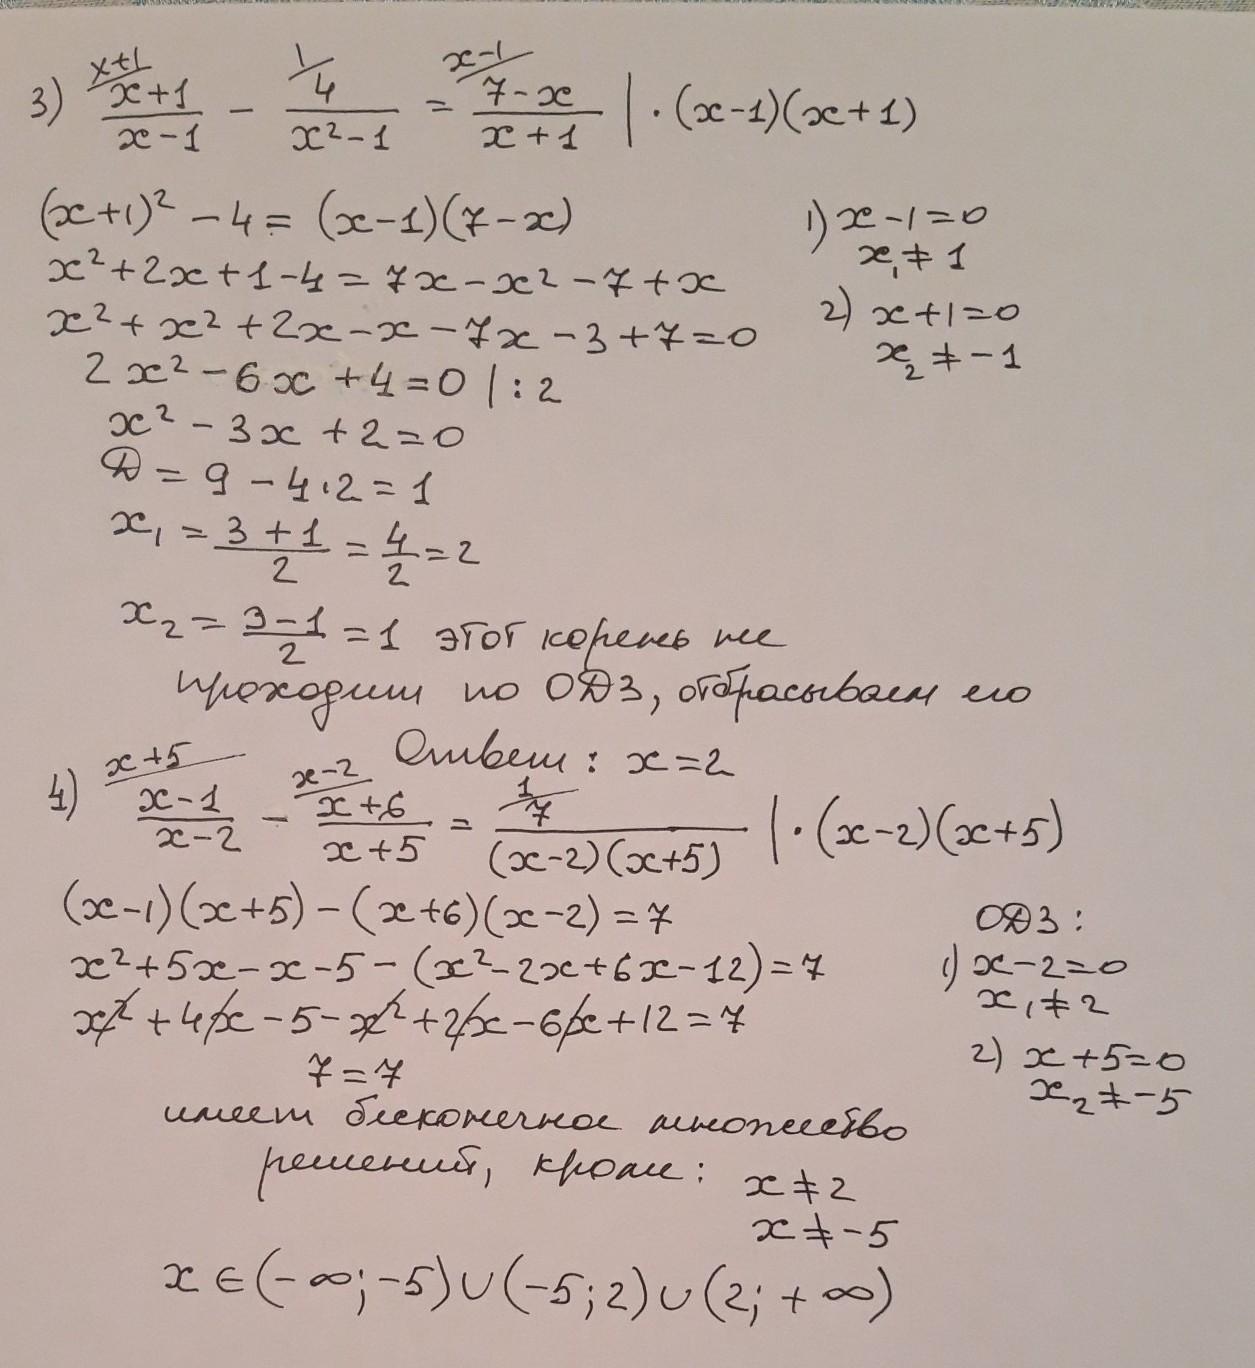 3) x+1/ (x+1)/(x-1) - 1/ 4/(x²-1) = x-1/ (7-x)/(x+1) | · (x-1)(x+1)
(x+1)² - 4 = (x-1)(7-x)
x² + 2x + 1 - 4 = 7x - x² - 7 + x
x² + x² + 2x - x - 7x - 3 + 7 = 0
2x² - 6x + 4 = 0 | : 2
x² - 3x + 2 = 0
D = 9 - 4·2 = 1
x₁ = (3+1)/2 = 4/2 = 2
x₂ = (3-1)/2 = 1 этот корень не
проходит по ОДЗ, отбрасываем его
Ответ: x = 2
1) x - 1 = 0
x₁ ≠ 1
2) x + 1 = 0
x₂ ≠ -1
4) x+5/ (x-1)/(x-2) - x-2/ (x+6)/(x+5) = 1/ 7/((x-2)(x+5)) | · (x-2)(x+5)
(x-1)(x+5) - (x+6)(x-2) = 7
x² + 5x - x - 5 - (x² - 2x + 6x - 12) = 7
x² + 4x - 5 - x² + 2x - 6x + 12 = 7
7 = 7
имеет бесконечное множество
решений, кроме: x ≠ 2
x ≠ -5
x ∈ (-∞; -5) ∪ (-5; 2) ∪ (2; +∞)
ОДЗ:
1) x - 2 = 0
x₁ ≠ 2
2) x + 5 = 0
x₂ ≠ -5